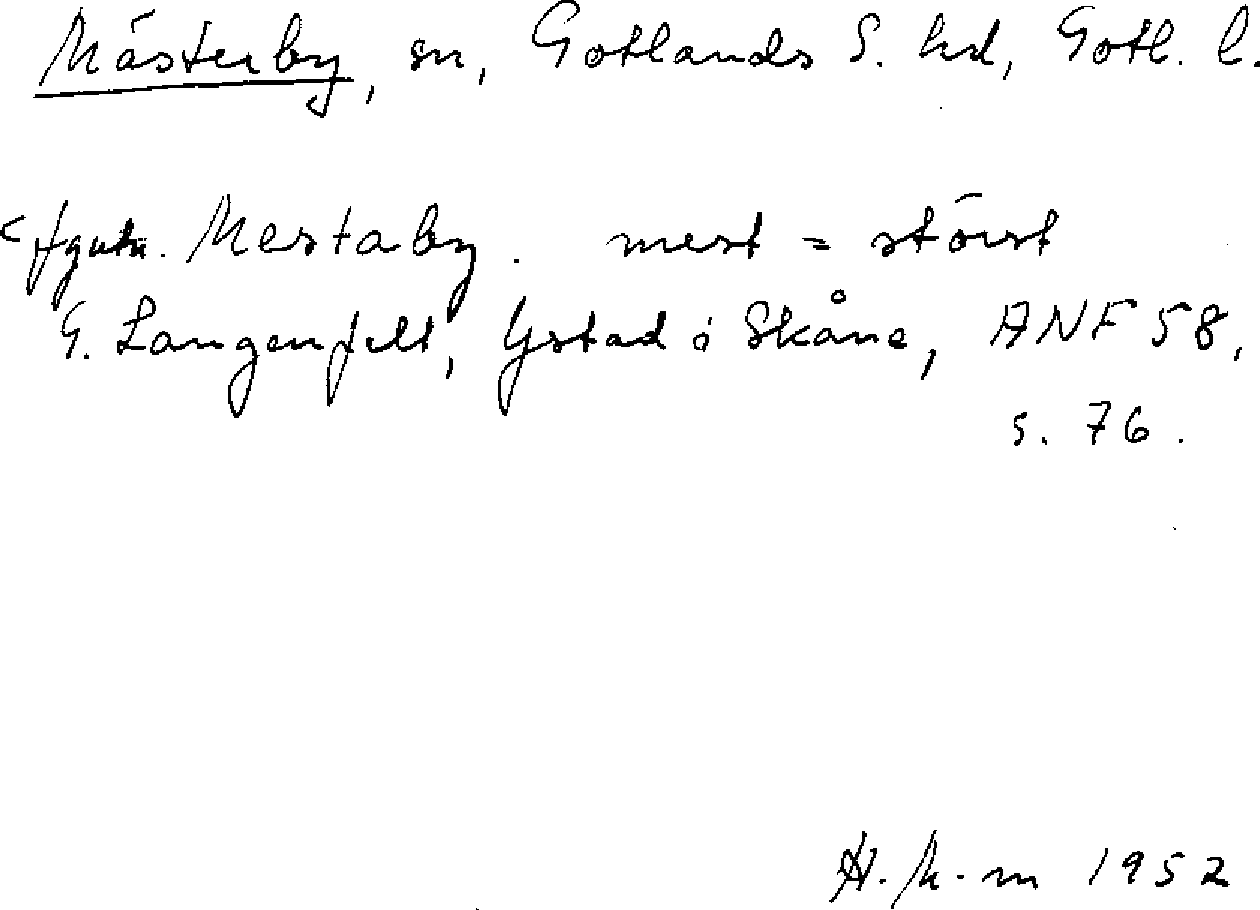 Mästerby, sn, Gotlands S. hd, Gotl. l.
< fgutn. Mestaby. mest = störst
G. Langenfelt, Ystad i Skåne, ANF 58,
s. 76.
H. K-m 1952